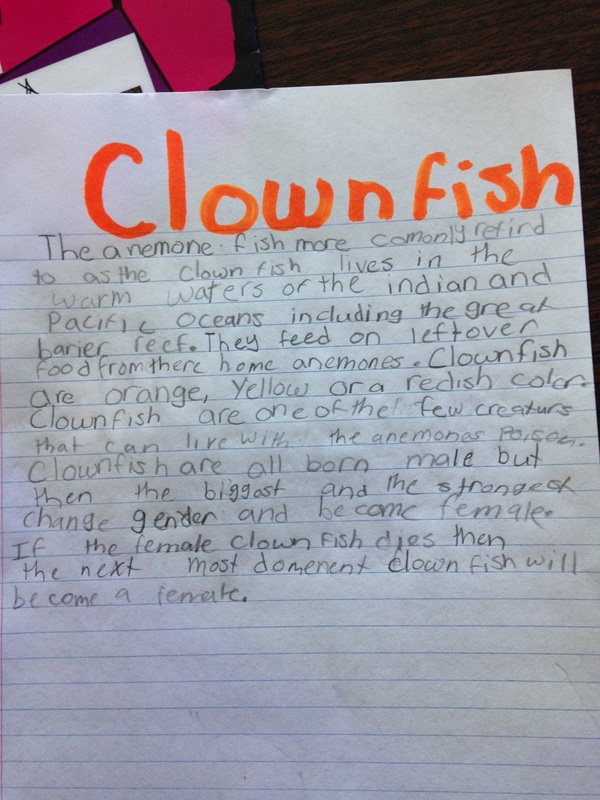 Clownfish
The anemone fish more comonly refird
to as the clown fish lives in the
warm waters of the indian and
Pacific Oceans including the great
barier reef. They feed on leftover
food from there home anemones. Clownfish
are orange, yellow or a redish color.
Clownfish are one of the few creaturs
that can live with the anemones Poison.
Clownfish are all born male but
then the biggest and the strongest
change gender and become female.
If the female clown fish dies then
the next most domenent clown fish will
become a female.